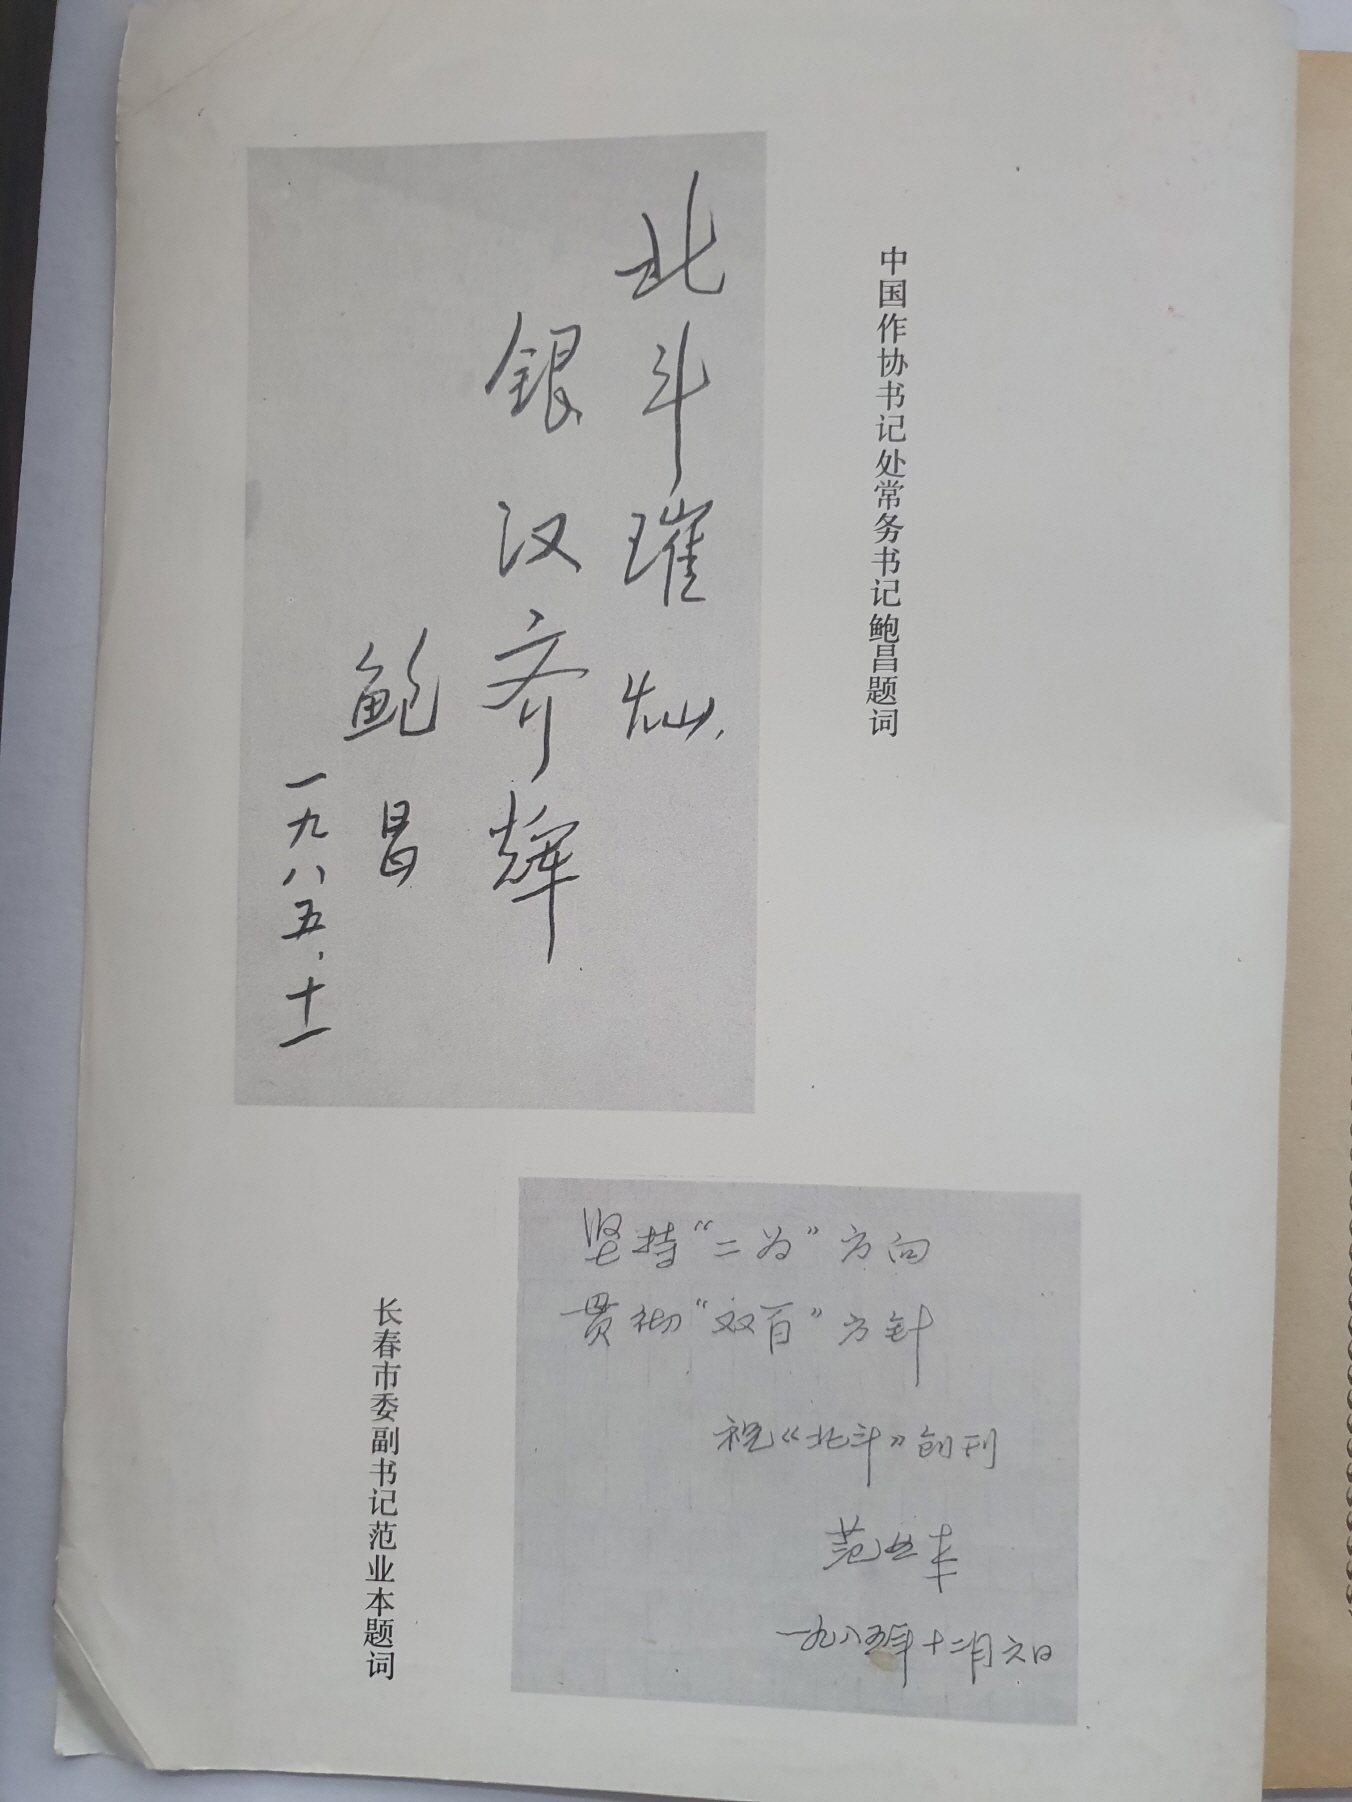 中国作协书记处常务书记鲍昌题词
北斗璀灿,
银汉齐辉
鲍昌
一九八五.十一
坚持“二为”方向
贯彻“双百”方针
祝《北斗》创刊
范业本
一九八五年十二月六日
长春市委副书记范业本题词